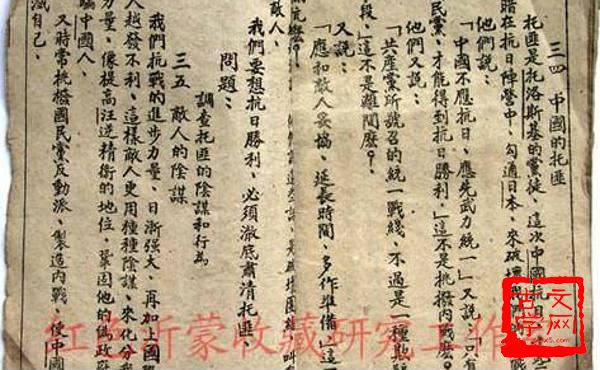 三四 中國的托匪
托匪是托洛斯基的黨徒、這次中國抗日
暗在抗日陣營中、勾通日本、來破壞我們的
他們說：
「中國不應抗日、應先武力統一」又說「只有
民黨、才能得到抗日勝利」這不是挑撥內戰麽？
他們又說：
「共產黨所號召的統一戰綫、不過是一種欺騙
段」這不是離間麽？
又說：
「應和敵人妥協、延長時間、多作準備」這
是破壞團結
敵人。
我們要想抗日勝利、必須澈底肅清托匪、
問題：
調查托匪的陰謀和行為
三五 敵人的陰謀
我們抗戰的進步力量、日漸強大、再加上國際
人越發不利、這樣敵人更用種種陰謀、來化分我
力量、像提高汪逆精衛的地位、鞏固他的偽政府
騙中國人、
又時常挑撥國民黨反動派、製造內戰、使中國
滅自己、
红色沂蒙收藏研究工作